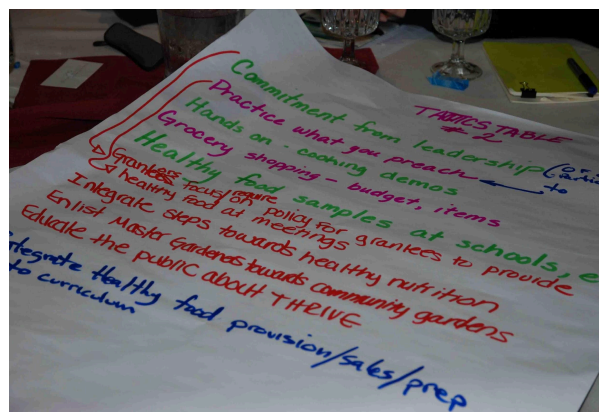 TABLE
# 2
Commitment from leadership
Practice what you preach
to
Hands on - cooking demos
Grocery shopping - budget, items
Healthy food samples at schools, e
focus on require policy for grantees to provide
healthy food at meetings
Integrate steps towards healthy nutrition
Enlist Master Gardeners towards community gardens
Educate the public about THRIVE
ntegrate Healthy food provision/sales/prep
to curriculum